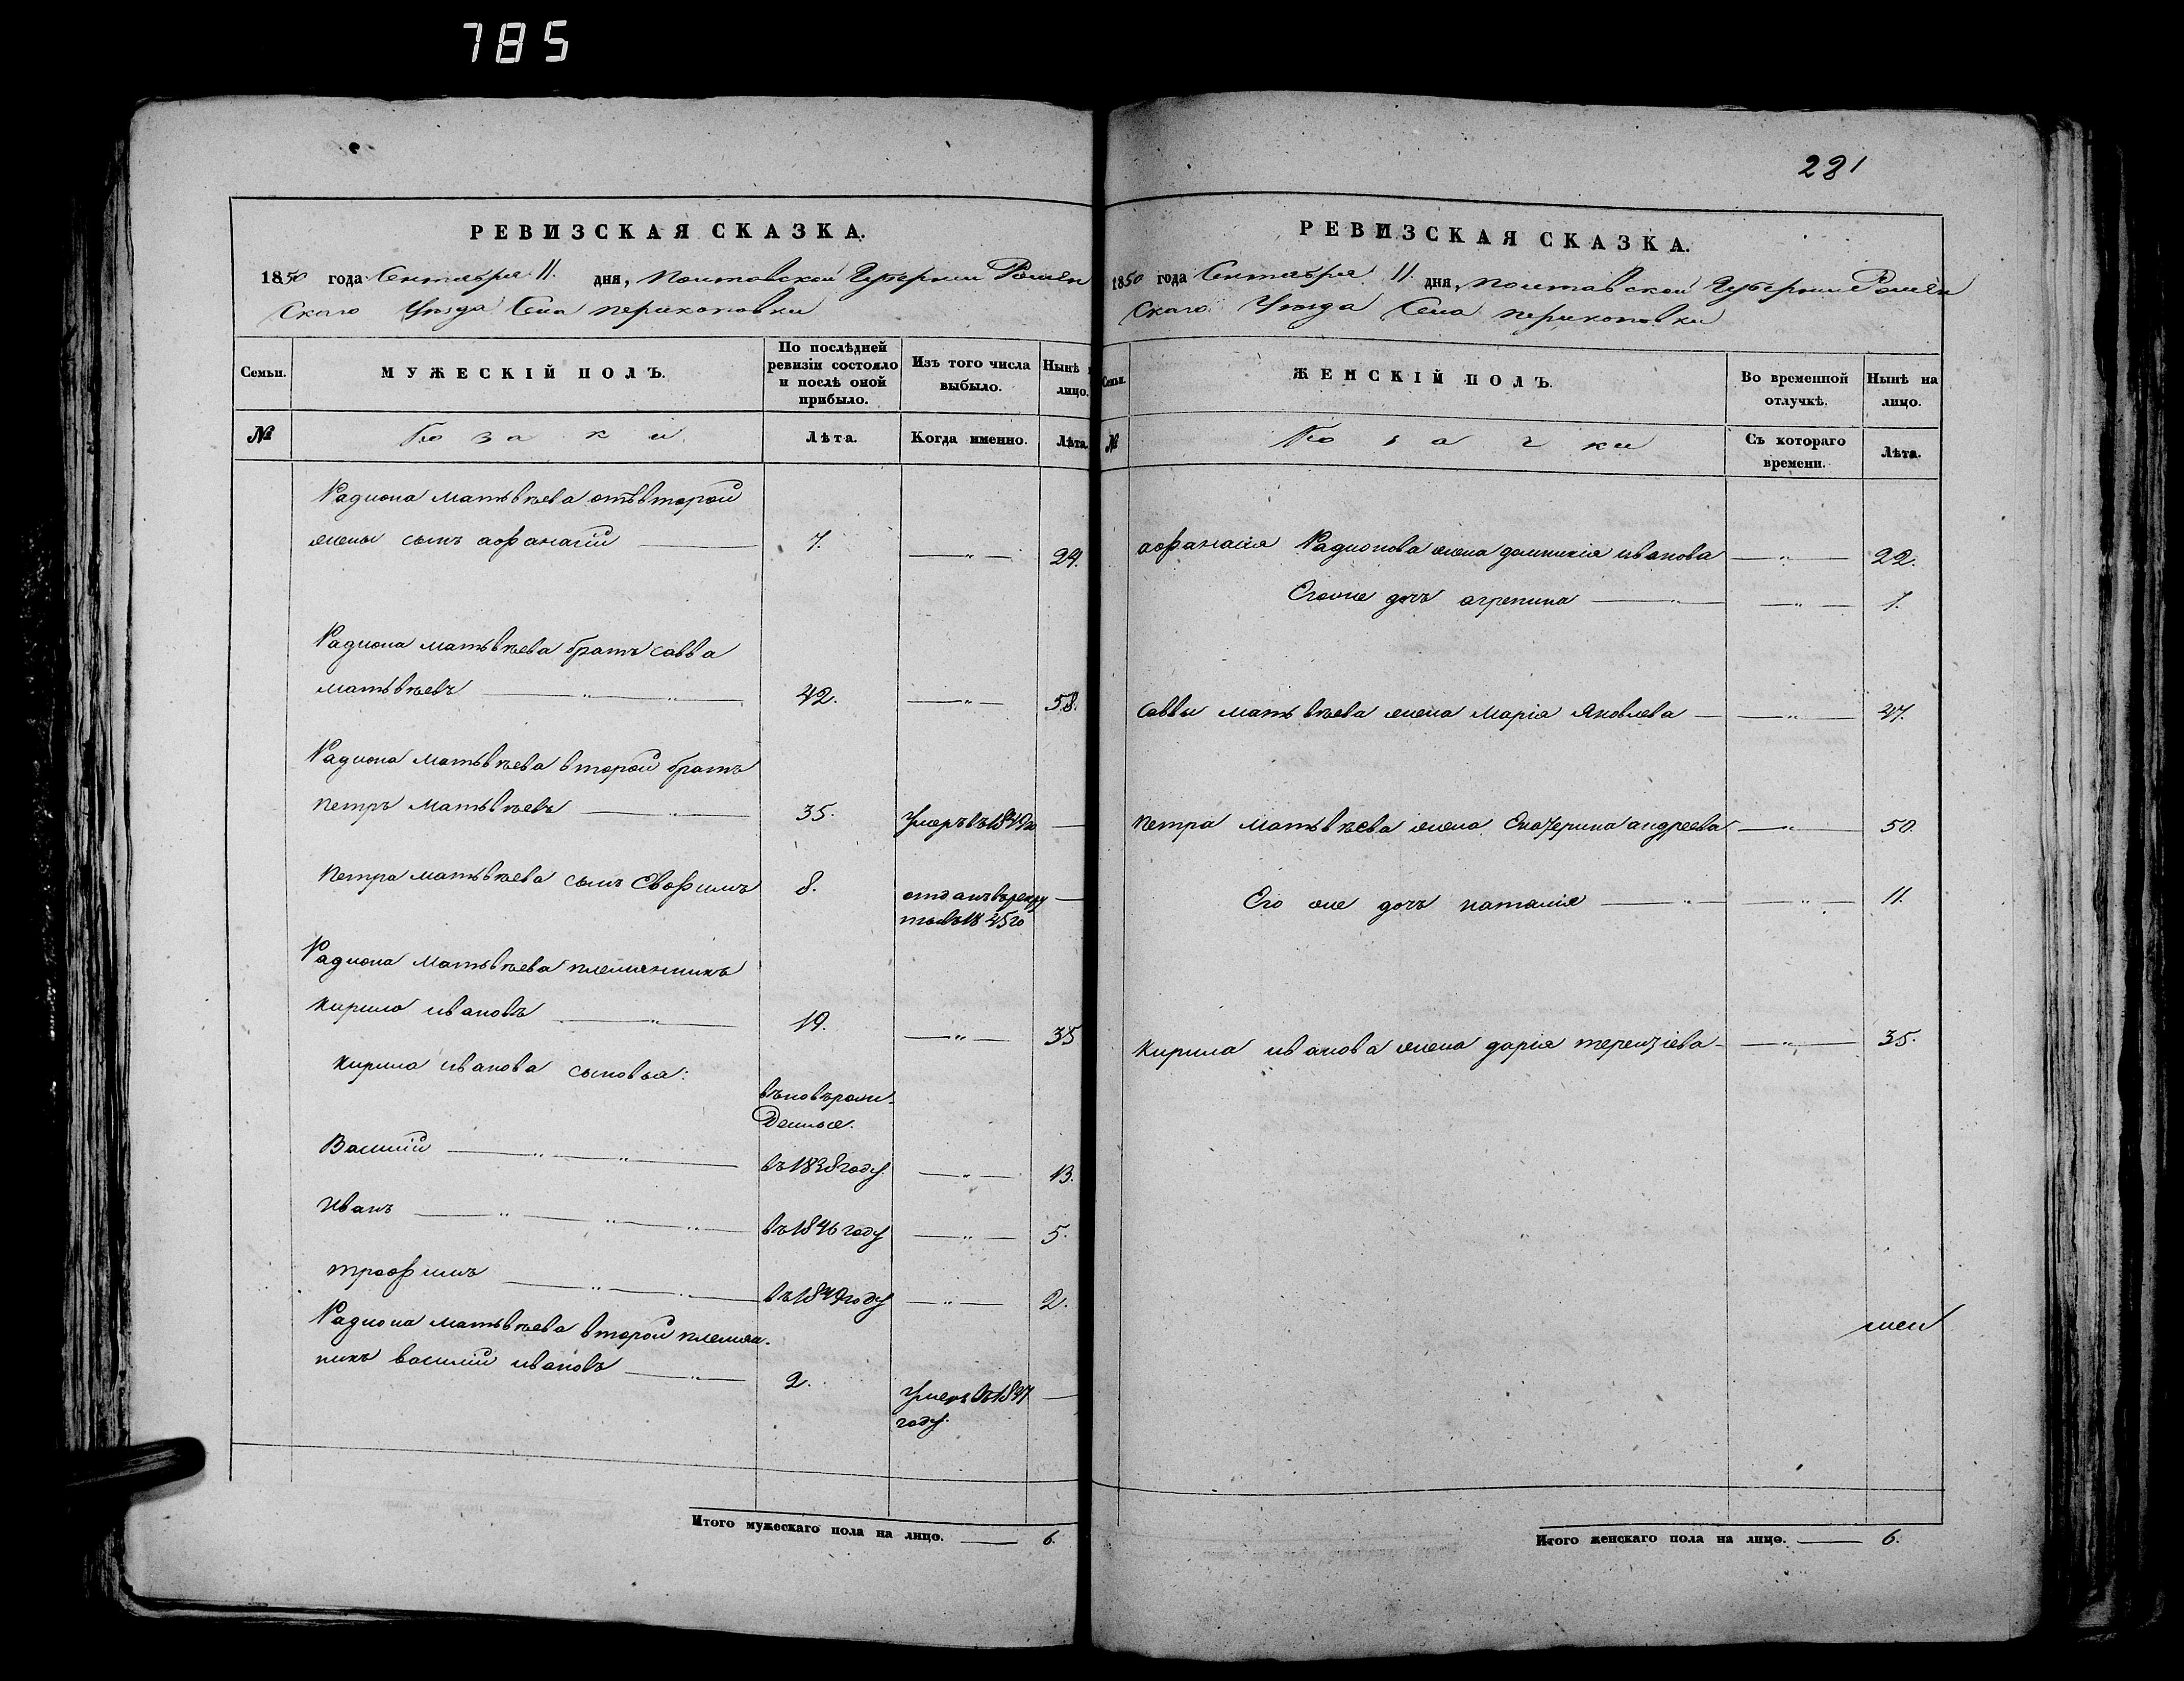 785
РЕВИЗСКАЯ СКАЗКА.
1850 года Сентября 11. дня, Полтавской Губернии Ромен
Скаго Уѣзда Села перекоповки
Семьи.
МУЖЕСКІЙ ПОЛЪ.
По послѣдней ревизіи состояло и послѣ оной прибыло.
Изъ того числа выбыло.
Нынѣ
лицо.
№
Козаки
Лѣта.
Когда именно.
Лѣта
Радиона матвѣева отъ второй
жены сынъ афанасій 7. 24.
Радиона матвѣева братъ савва
матвѣевъ 42. 58.
Радиона матвѣева второй братъ
петръ матвѣевъ 35. Умеръ въ 1849го
Петра матвѣева сынъ Евфимъ 8. отданъ въ рекру
ты въ 1845го
Радиона матвѣева племянникъ
кирило ивановъ 19. 35
кирила иванова сыновья:
въновърож
Денные.
Василій въ 1838 году 13.
Иванъ въ 1846 году 5.
трофимъ въ 1849 году 2.
Радиона матвѣева второй племян
никъ василій ивановъ 2. Умеръ въ 1847
году.
Итого мужескаго пола на лицо. 6.
281
РЕВИЗСКАЯ СКАЗКА.
1850 года Сентября 11. дня, полтавской Губернии Ромен
Скаго Уѣзда Села перекоповки
Семьи.
ЖЕНСКІЙ ПОЛЪ.
Во временной отлучкѣ.
Нынѣ на лицо.
№
Козачки
Съ котораго времени.
Лѣта.
афанасія Радионова жена домникія иванова 22.
Егоже дочъ агрепина 1.
Саввы матвѣева жена Марія Яковлева 47.
Петра матвѣева жена Екатерина андреева 50.
Его же дочъ наталія 11.
Кирила иванова жена дарія терентіева 35.
Итого женскаго пола на лицо. 6.